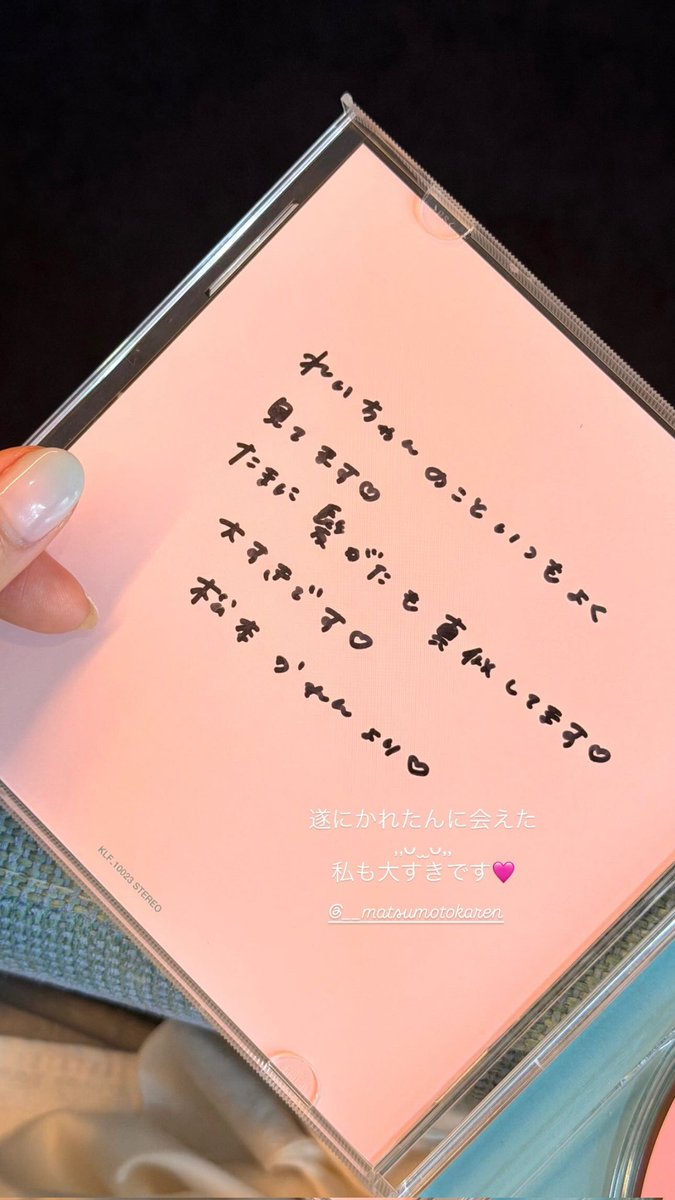 れいちゃんのこといつもよく
見てます♡
たまに髪がたも真似してます♡
大すきです♡
松本かれんより♡
KLF-10023 STEREO
遂にかれたんに会えた
,,ᴗ ̫ ᴗ,,
私も大すきです🩷
@__matsumotokaren